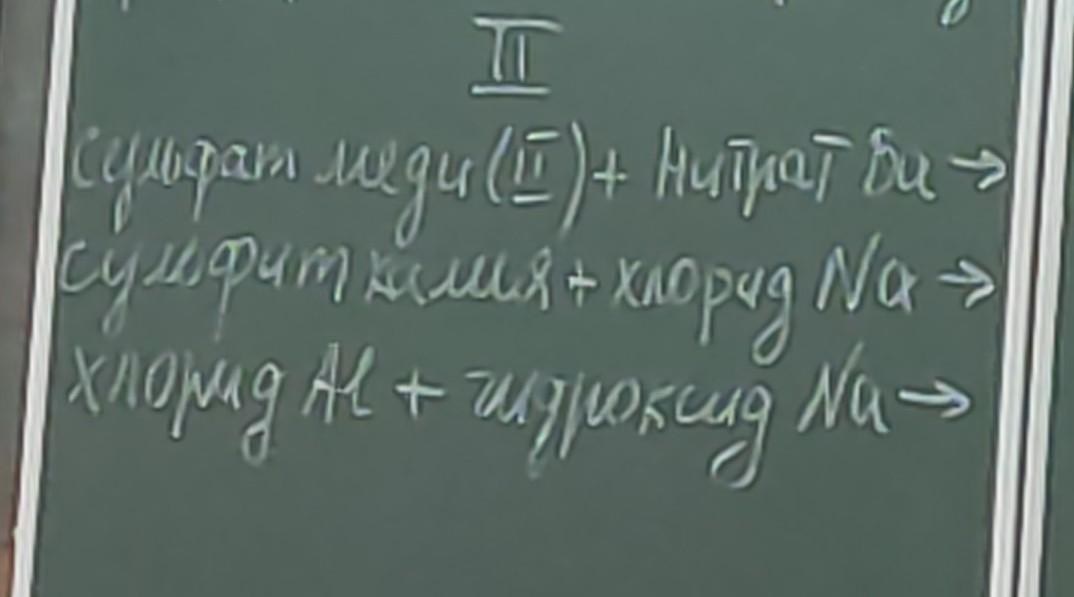 II
сульфат меди (II) + Нитрат Ba →
сульфит калия + хлорид Na →
хлорид Al + гидроксид Na →